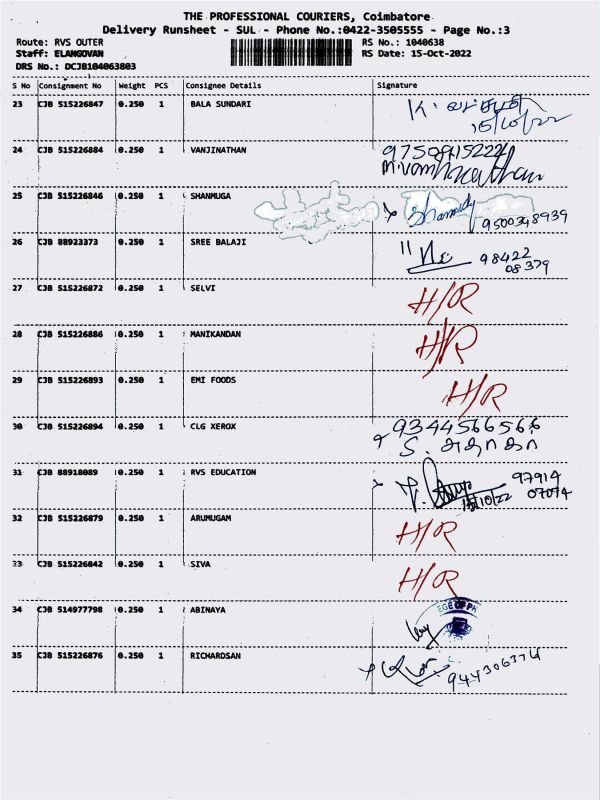 THE PROFESSIONAL COURIERS, Coimbatore
Delivery Runsheet - SUL - Phone No.:0422-3505555 - Page No.:3
Route: RVS OUTER RS No.: 1040638
Staff: ELANGOVAN RS Date: 15-Oct-2022
DRS No.: DCJB104063803
S No Consignment No Weight PCS Consignee Details Signature
23 CJB 515226847 0.250 1 BALA SUNDARI K.
15/10/22
24 CJB 515226884 0.250 1 VANJINATHAN
25 CJB 515226846 0.250 1 SHANMUGA
9500348939
26 CJB 88923373 0.250 1 SREE BALAJI 98422
08379
27 CJB 515226872 0.250 1 SELVI H/R
28 CJB 515226886 0.250 1 MANIKANDAN H/R
29 CJB 515226893 0.250 1 EMI FOODS H/R
30 CJB 515226894 0.250 1 CLG XEROX 9344566566
S. அசோகா
31 CJB 88918089 0.250 1 RVS EDUCATION 97914
15/10/22 07074
32 CJB 515226879 0.250 1 ARUMUGAM H/R
33 CJB 515226842 0.250 1 SIVA H/R
34 CJB 514977798 0.250 1 ABINAYA EGE OF PH
35 CJB 515226876 0.250 1 RICHARDSAN